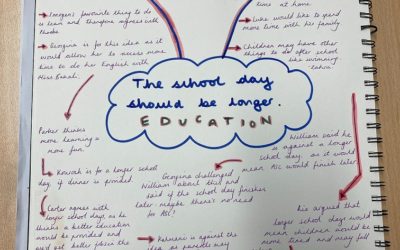 Imogen's favourite thing to do
is learn and therefore agrees with
Phoebe.
Georgina is for this idea as it
would allow her to receive more
time to do her English with
Miss
time at home.
Luke would like to spend
more time with his family
Children may have other
things to do after school
like swimming
The school day
should be longer.
EDUCATION
Parker thinks
more learning =
more fun.
is for a longer school
day, if dinner is provided.
Carter agrees with
longer school days, as he
thinks a better education
would be provided and
we'd get better places the
Georgina challenged
William about this and
said if the school day finishes
later - maybe there's no need
for ASC!
William said he
is against a longer
school day, as it would
mean ASC would finish later.
is against the
idea as parents may
argued that
larger school days would
mean children would be
more tired and may fall